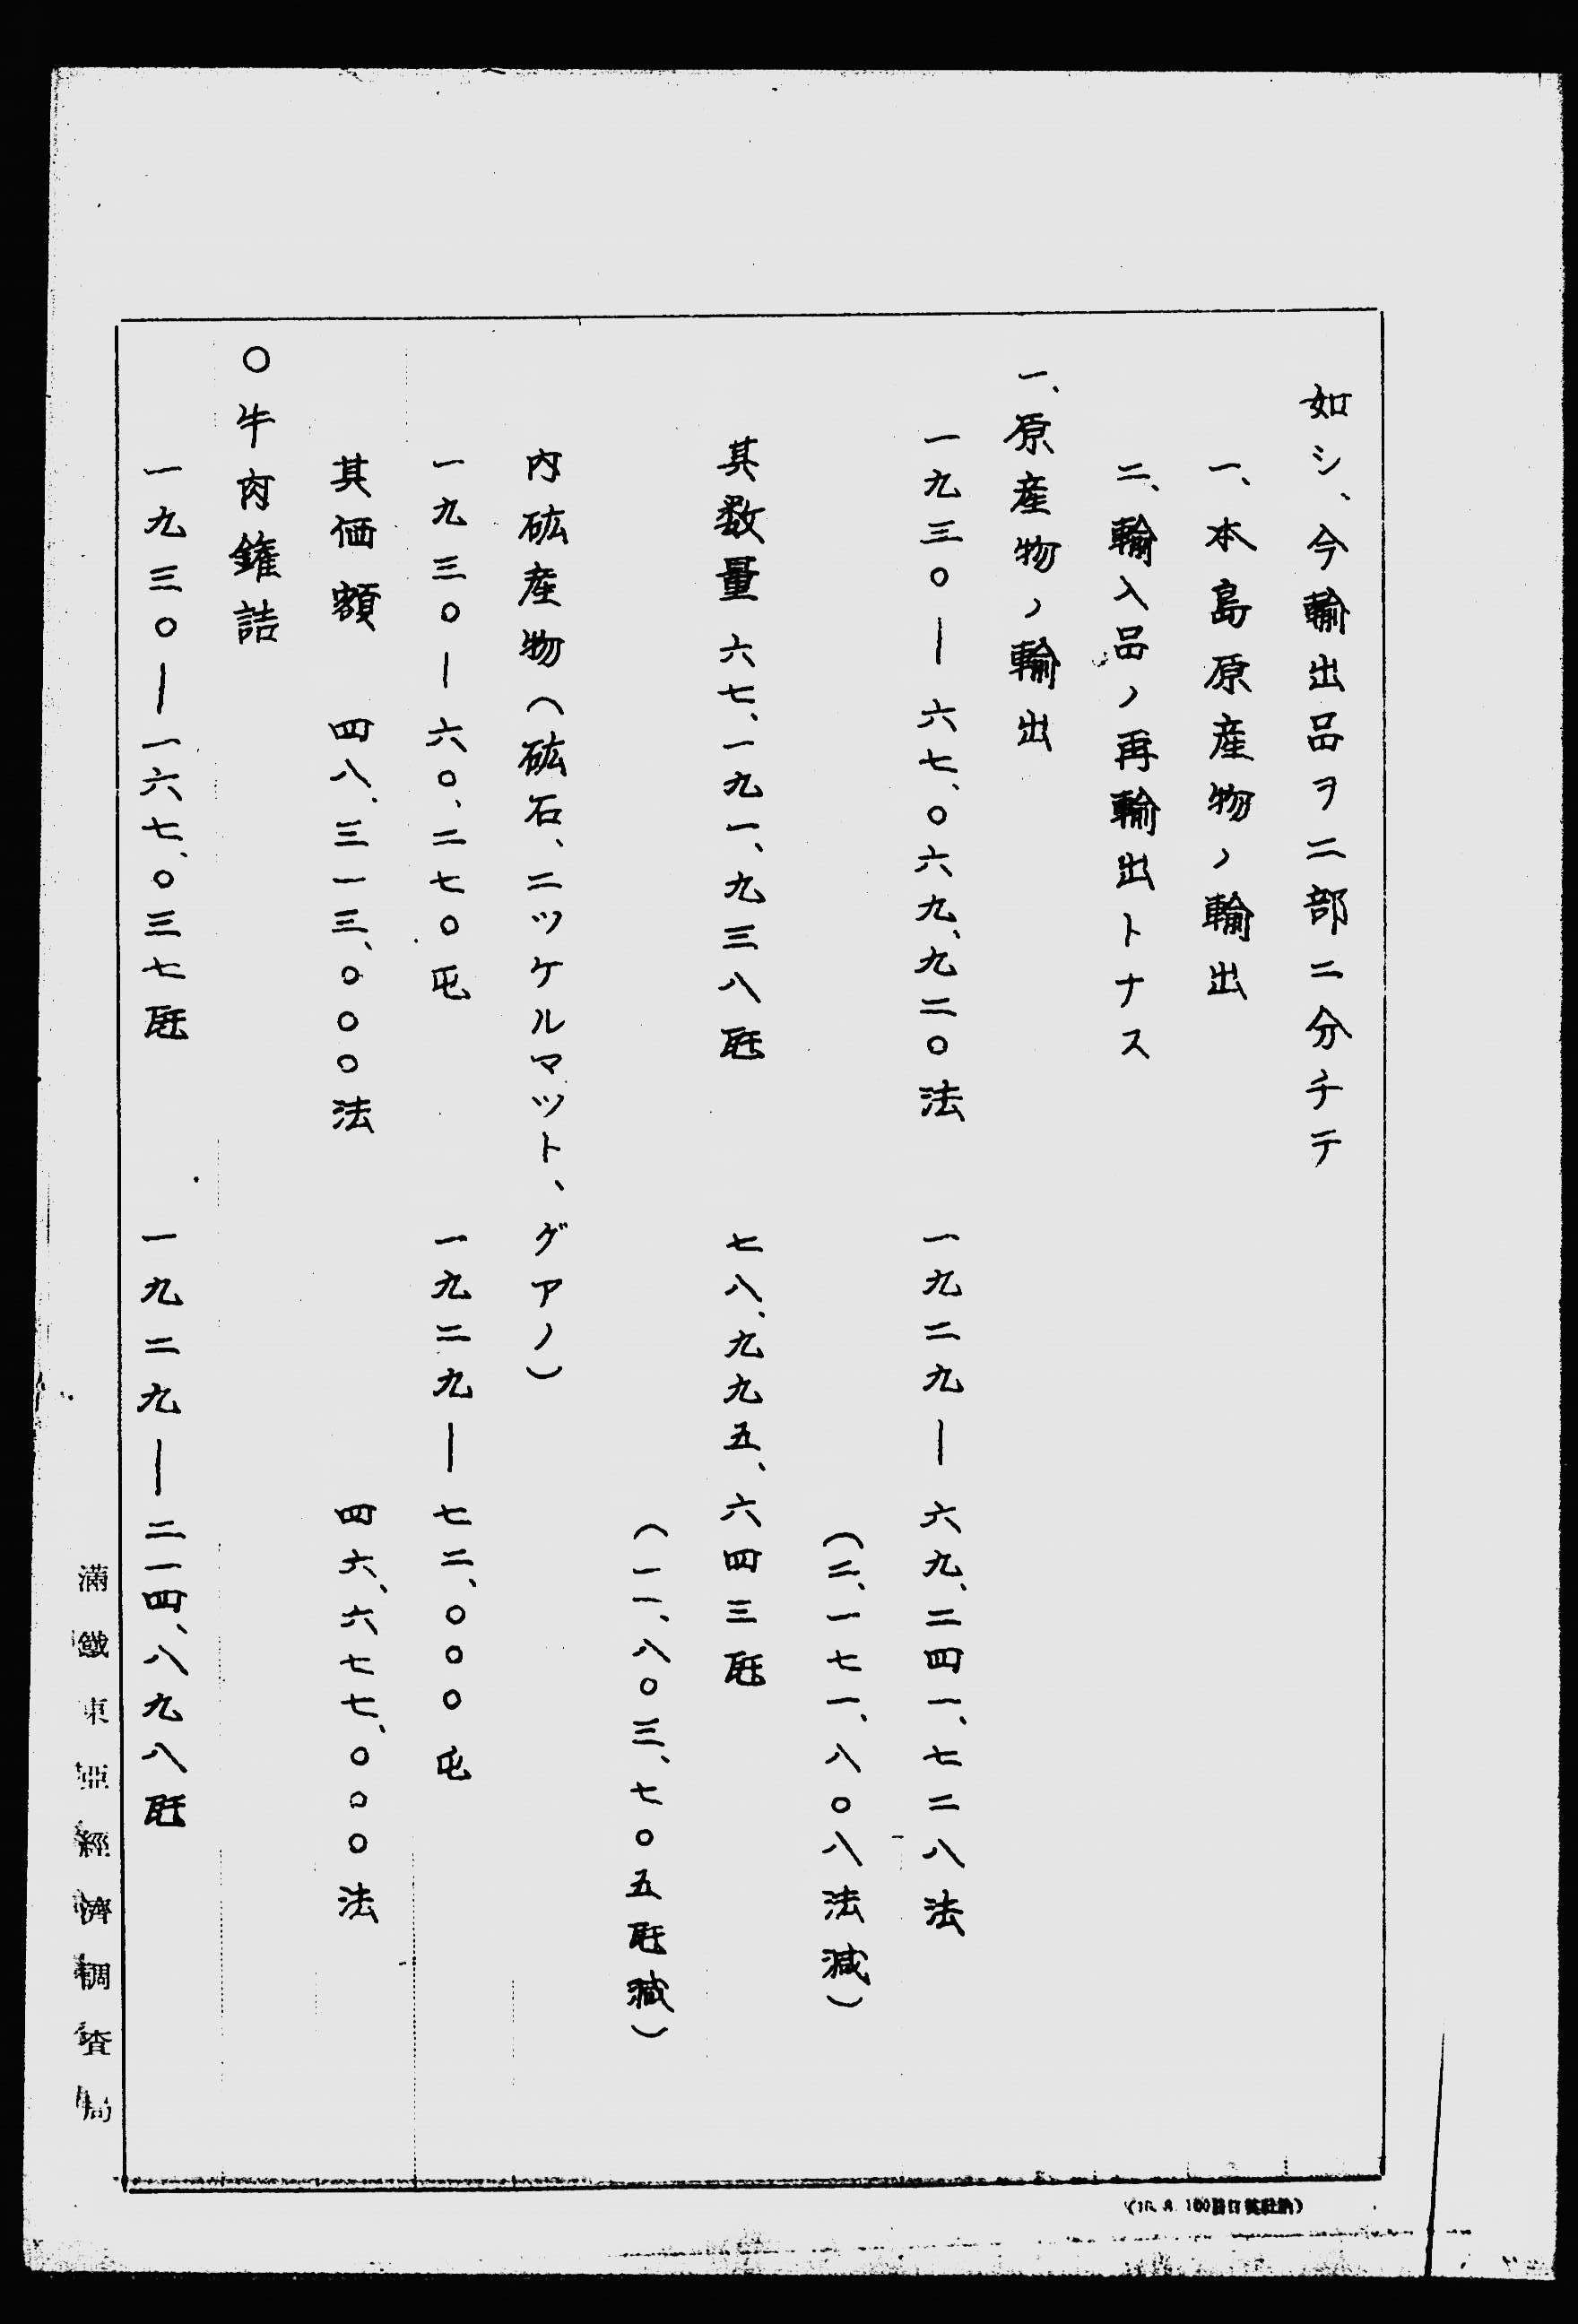 如シ、今輸出品ヲ二部ニ分チテ
一、本島原産物ノ輸出
二、輸入品ノ再輸出トナス
一、原産物ノ輸出
一九三〇―六七、〇六九、九二〇法　一九二九―六九、二四一、七二八法
（二、一七一、八〇八法減）
其数量 六七、一九一、九三八瓩　七八、九九五、六四三瓩
（一一、八〇三、七〇五瓩減）
内砿産物（砿石、ニツケルマツト、グアノ）
一九三〇―六〇、二七〇屯　一九二九―七二、〇〇〇屯
其価額　四八、三一三、〇〇〇法　四六、六七七、〇〇〇法
〇牛肉鑵詰
一九三〇―一六七、〇三七瓩　一九二九―二一四、八九八瓩
滿鐵東亞經濟調査局